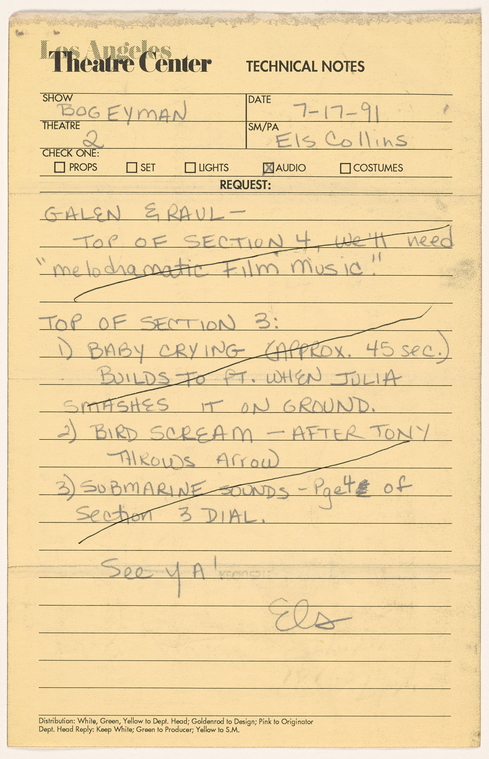 Los Angeles
Theatre Center TECHNICAL NOTES
SHOW BOGEYMAN DATE 7-17-91
THEATRE 2 SM/PA Els Collins
CHECK ONE:
PROPS SET LIGHTS AUDIO COSTUMES
REQUEST:
GALEN & RAUL—
TOP OF SECTION 4, we'll need
"melodramatic Film Music."
TOP OF SECTION 3:
1) BABY CRYING (APPROX. 45 sec.)
BUILDS TO PT. WHEN JULIA
SMASHES IT ON GROUND.
2) BIRD SCREAM — AFTER TONY
THROWS ARROW
3) SUBMARINE SOUNDS - Pge 4 of
Section 3 DIAL.
See YA!
Els
Distribution: White, Green, Yellow to Dept. Head; Goldenrod to Design; Pink to Originator
Dept. Head Reply: Keep White; Green to Producer; Yellow to S.M.